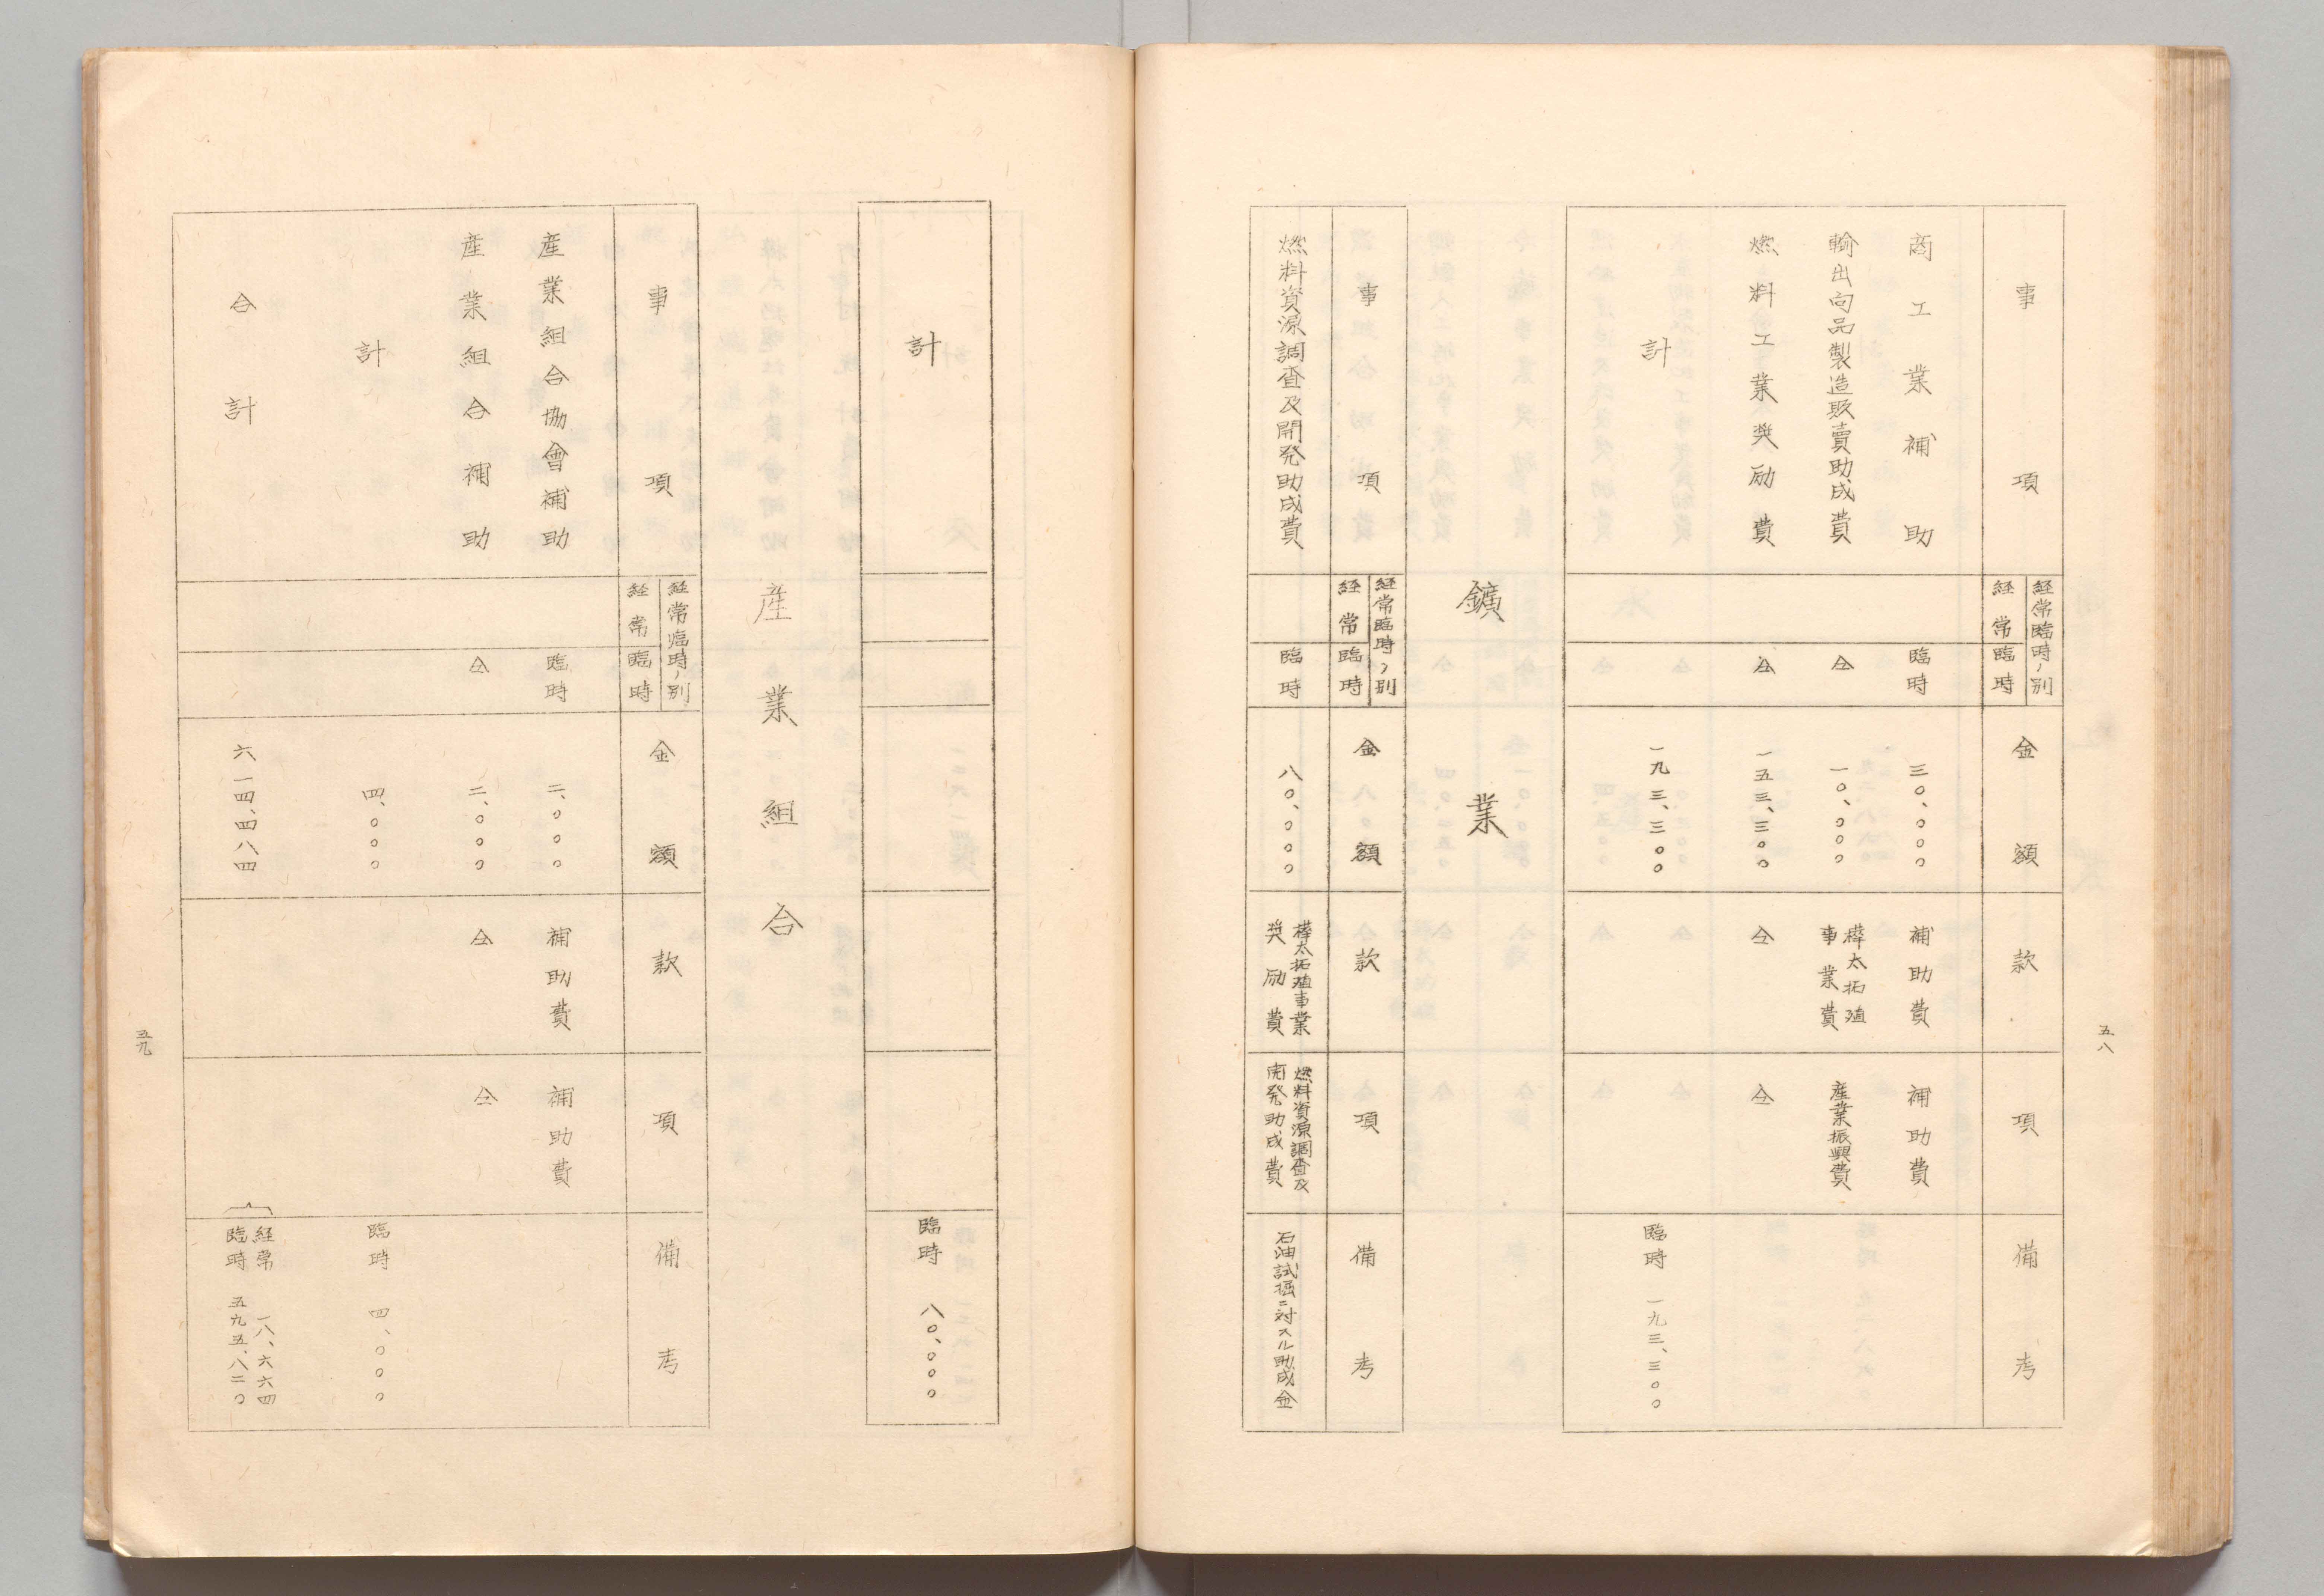 五八
事項
経常臨時ノ別
経常
臨時
金額
款
項
備考
商工業補助
臨時
三〇、〇〇〇
補助費
補助費
輸出向品製造販賣助成費
仝
一〇、〇〇〇
樺太拓殖
事業費
産業振興費
燃料工業奨励費
仝
一五三、三〇〇
仝
仝
計
一九三、三〇〇
臨時 一九三、三〇〇
鑛業
事項
経常臨時ノ別
経常
臨時
金額
款
項
備考
燃料資源調査及開発助成費
臨時
八〇、〇〇〇
樺太拓殖事業
奨励費
燃料資源調査及
開発助成費
石油試掘ニ対スル助成金
計
臨時 八〇、〇〇〇
産業組合
事項
経常臨時ノ別
経常
臨時
金額
款
項
備考
産業組合協會補助
臨時
二、〇〇〇
補助費
補助費
産業組合補助
仝
二、〇〇〇
仝
仝
計
四、〇〇〇
臨時 四、〇〇〇
合計
六一四、四八四
経常 一八、六六四
臨時 五九五、八二〇
五九